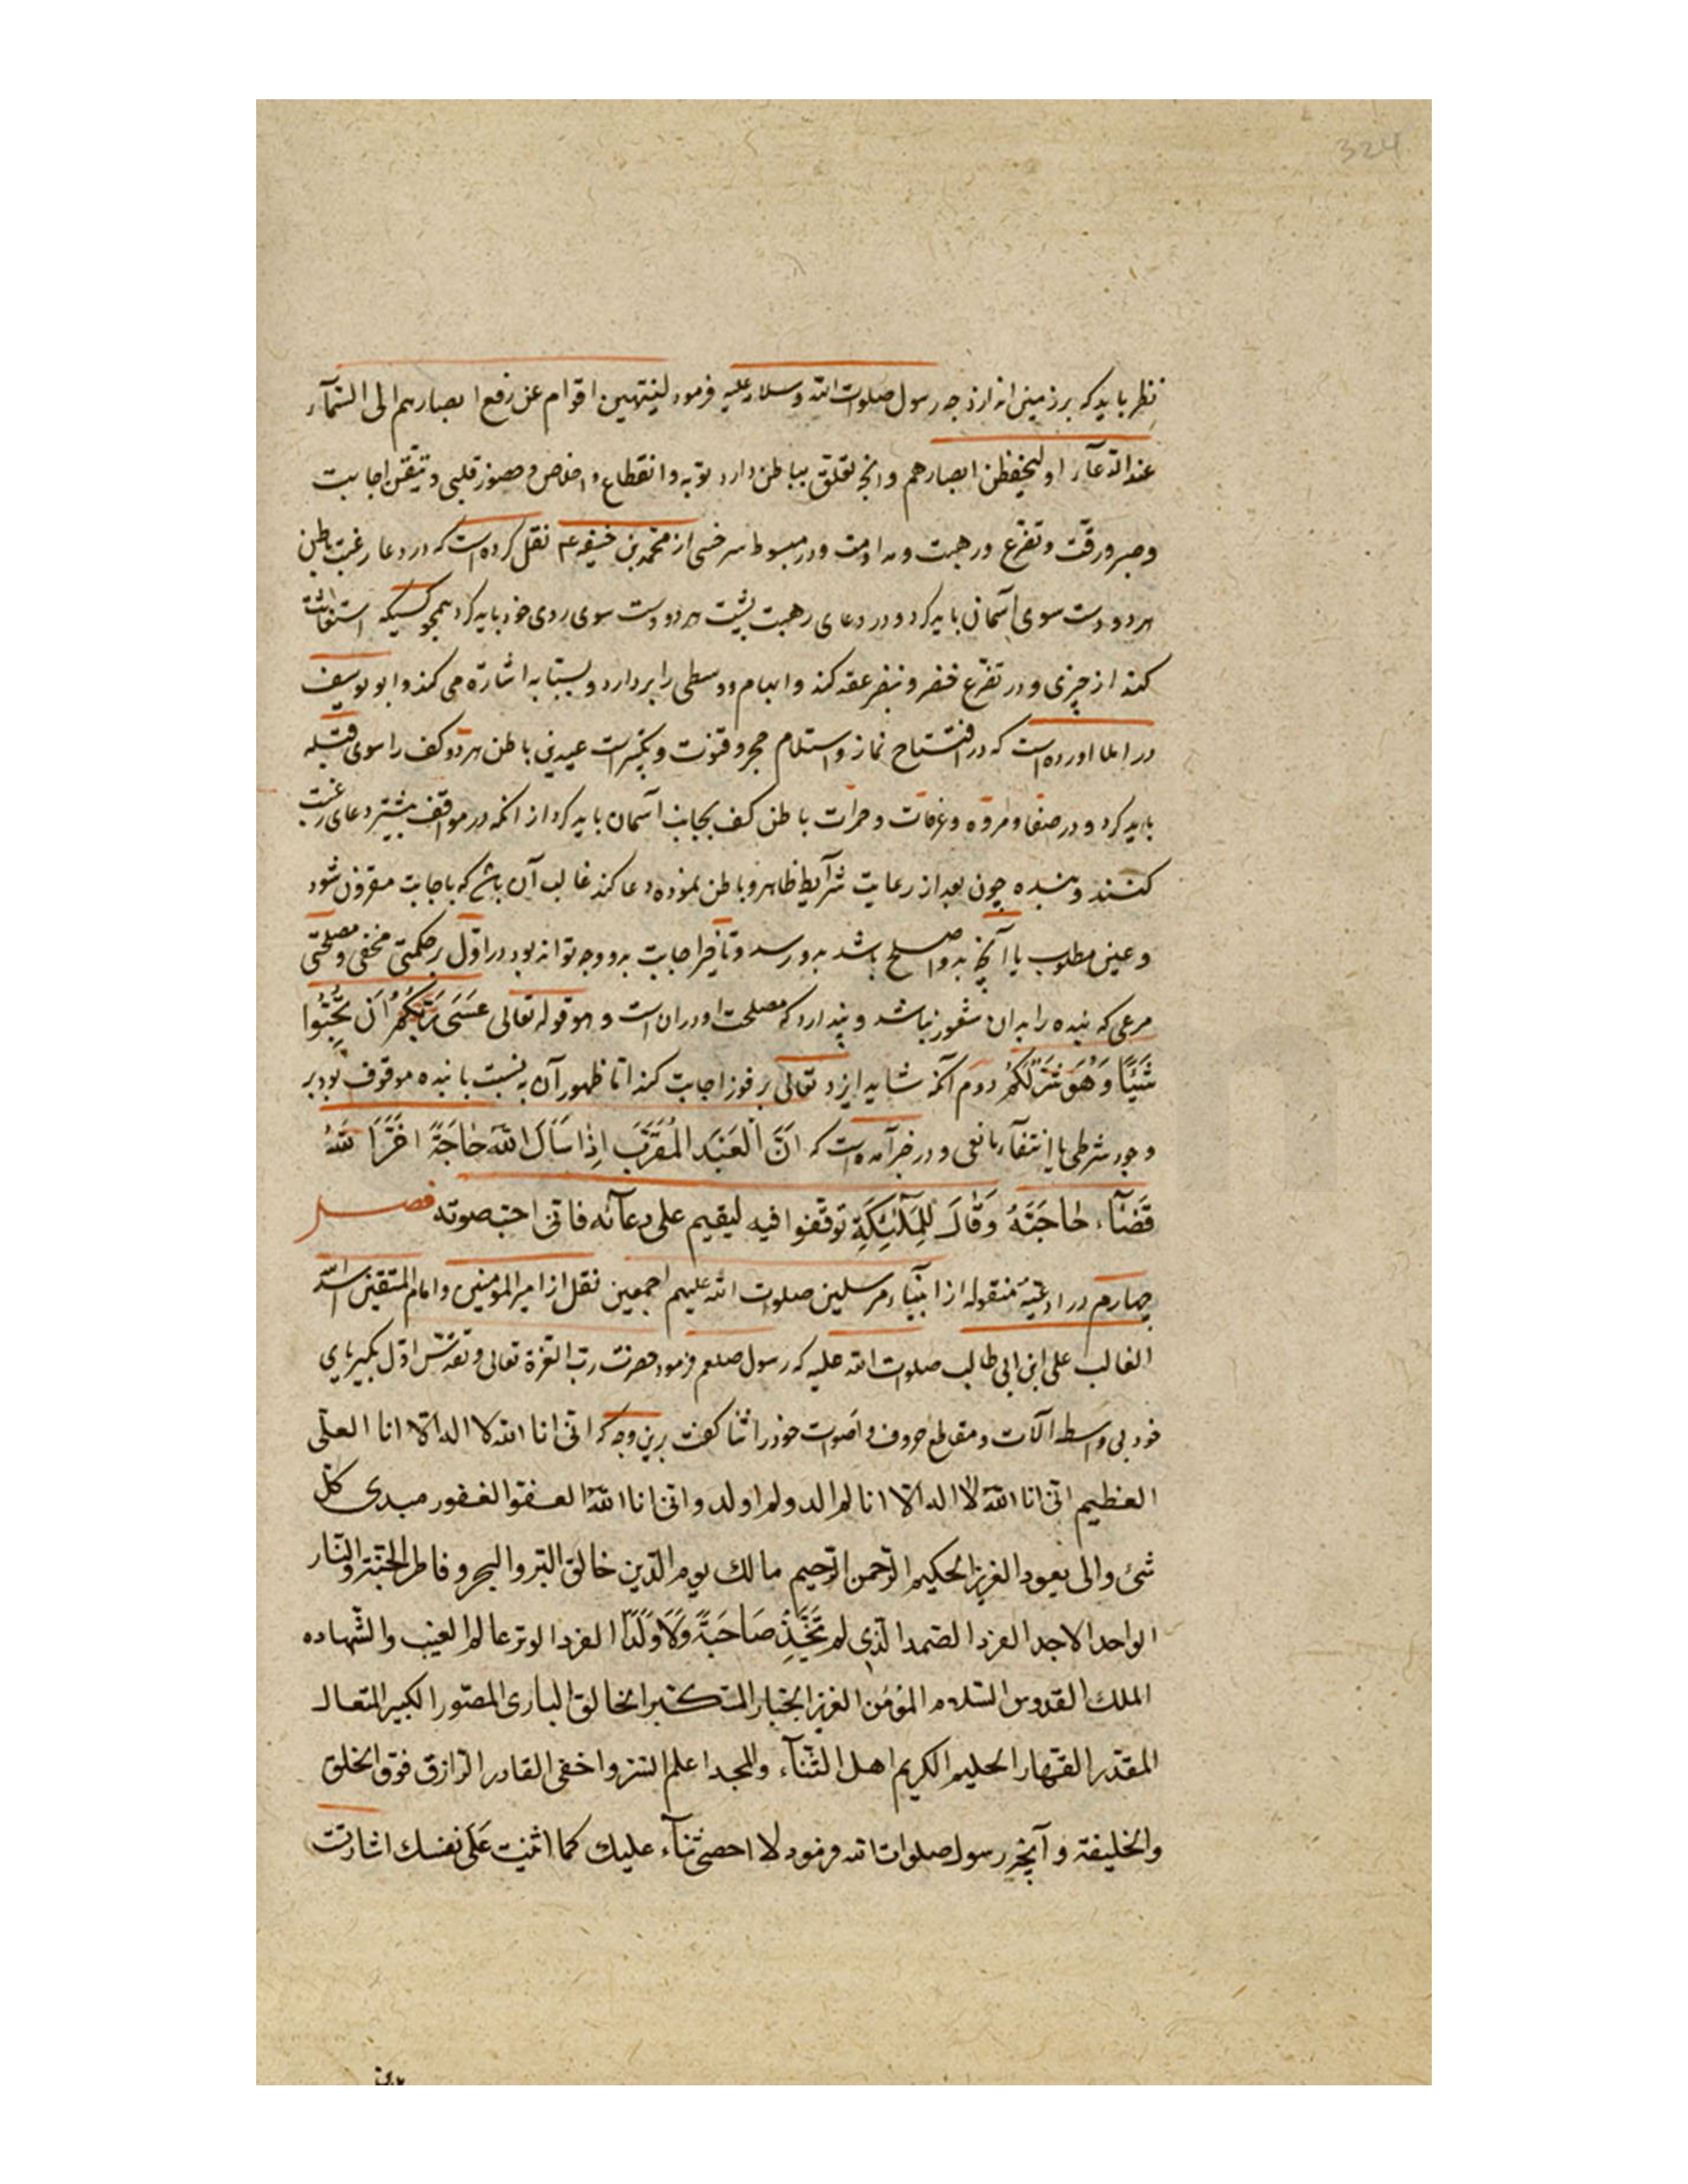 324
نظر باید که بر زمین اندازد چه رسول صلوات الله وسلامه علیه فرمود لینتهین اقوام عن رفع ابصارهم الی السّمآء
عند الدّعآء او لیخفظن ابصارهم وانچه تعلّق بباطن دارد توبه وانقطاع و اخلاص و حضور قلبی و تیقّن اجابت
وصبر ورقّت وتضرّع ورهبت ومداومت ودر مبسوط سرخسی از محمّد بن حنیفه عم نقل کرده است که در دعا رغبت باطن
هر دو دست سوی آسمان باید کرد و در دعای رهبت پشت هر دو دست سوی روی خود باید کرد همچو کسیکه استغاثت
کند از چیزی و در تضرّع خنصر و بنصر عقد کند و ابهام و وسطی را بردارد و بسبّابه اشارة می کند و ابو یوسف
در املا اورده است که در افتتاح نماز و استلام حجر و قنوت و تکبیرات عیدین باطن هر دو کف را سوی قبله
باید کرد و در صفا و مروه وعرفات و جمرات باطن کف بجانب آسمان باید کرد از انکه در مواقف بیشتر دعای رغبت
کنند و بنده چون بعد از رعایت شرآیط ظاهر و باطن نموده دعا کند غالب آن باشد که باجابت مقرون شود
و عین مطلوب یا آنچه بدو اصلح باشد بدو رسد و تأخیر اجابت بدو وجه تواند بود در اوّل بر حکمتی مخفی و مصلحتی
مرعی که بنده را بدان شعور نباشد و پندارد که مصلحت او در ان است و هو قوله تعالی عَسَی رَبُّکُمْ اَن تُحِبُّوا
شَیْئًا وَهُوَ شَرٌّ لَکُمْ دوم آنکه شاید ایزد تعالی بر فور اجابت کند امّا ظهور آن به نسبت با بنده موقوف بود بر
وجود شرطی یا انتفآء مانعی و در خبر آمده است که اِنَّ الْعَبْدَ الْمُقَرَّبَ اِذَا سَأَلَ اللّٰهَ حَاجَةً اَخَّرَ اللّٰهُ
قَضَآءَ حَاجَتَهُ وَقَالَ لِلْمَلٰئِکَةِ توقّفوا فیه لیقیم علی دعآئه فانّی احبّ صوته فصل
چهارم در ادعیۀ منقوله از انبیاء و مرسلین صلوات الله علیهم اجمعین نقل از امیر المومنین و امام المتّقین اسد الله
الغالب علی ابن ابی طالب صلوات الله علیه که رسول صلعم فرمود حضرت ربّ العزة تعالی و تقدّس اوّل بکبریای
خود بی واسطه آلات و مقاطع حروف و اصوات خود را ثنا گفت برین وجه که انّی انا الله لا اله الّا انا العلی
العظیم انّی انا اللّٰه لا اله الّا انا لم الد و لم اولد و انّی انا اللّٰه العفوّ الغفور مبدی کلّ
شئ والی یعود العزیز الحکیم الرّحمن الرّحیم مالک یوم الدّین خالق البّر والبحر و فاطر الجنّة والنّار
الواحد الاحد الفرد الصّمد الّذی لم تَتَّخِذْ صَاحِبَةً وَلَا وَلَدًا الفرد الوتر عالم الغیب والشّهاده
الملک القدوس السّلام المؤمن العزیز الجبّار المتکبّر الخالق الباری المصوّر الکبیر المتعال
المقتدر القهّار الحلیم الکریم اهل الثّنآء والمجد اعلم السّر و اخفی القادر الرّازق فوق الخلق
والخلیقة و آنچه رسول صلوات الله فرمود لا احصی ثنآء علیک کما اثنیت عَلَی نفسک اشارت